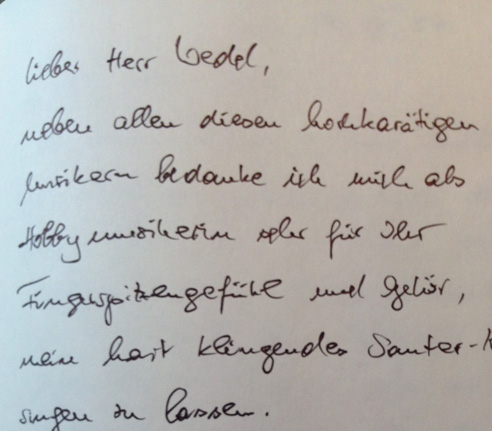 lieber Herr Vedel,
neben allen diesen hochkarätigen
Musikern bedanke ich mich als
Hobbymusikerin sehr für Ihr
Fingerspitzengefühl und Gehör,
mein hart klingendes Sauter-K
singen zu lassen.